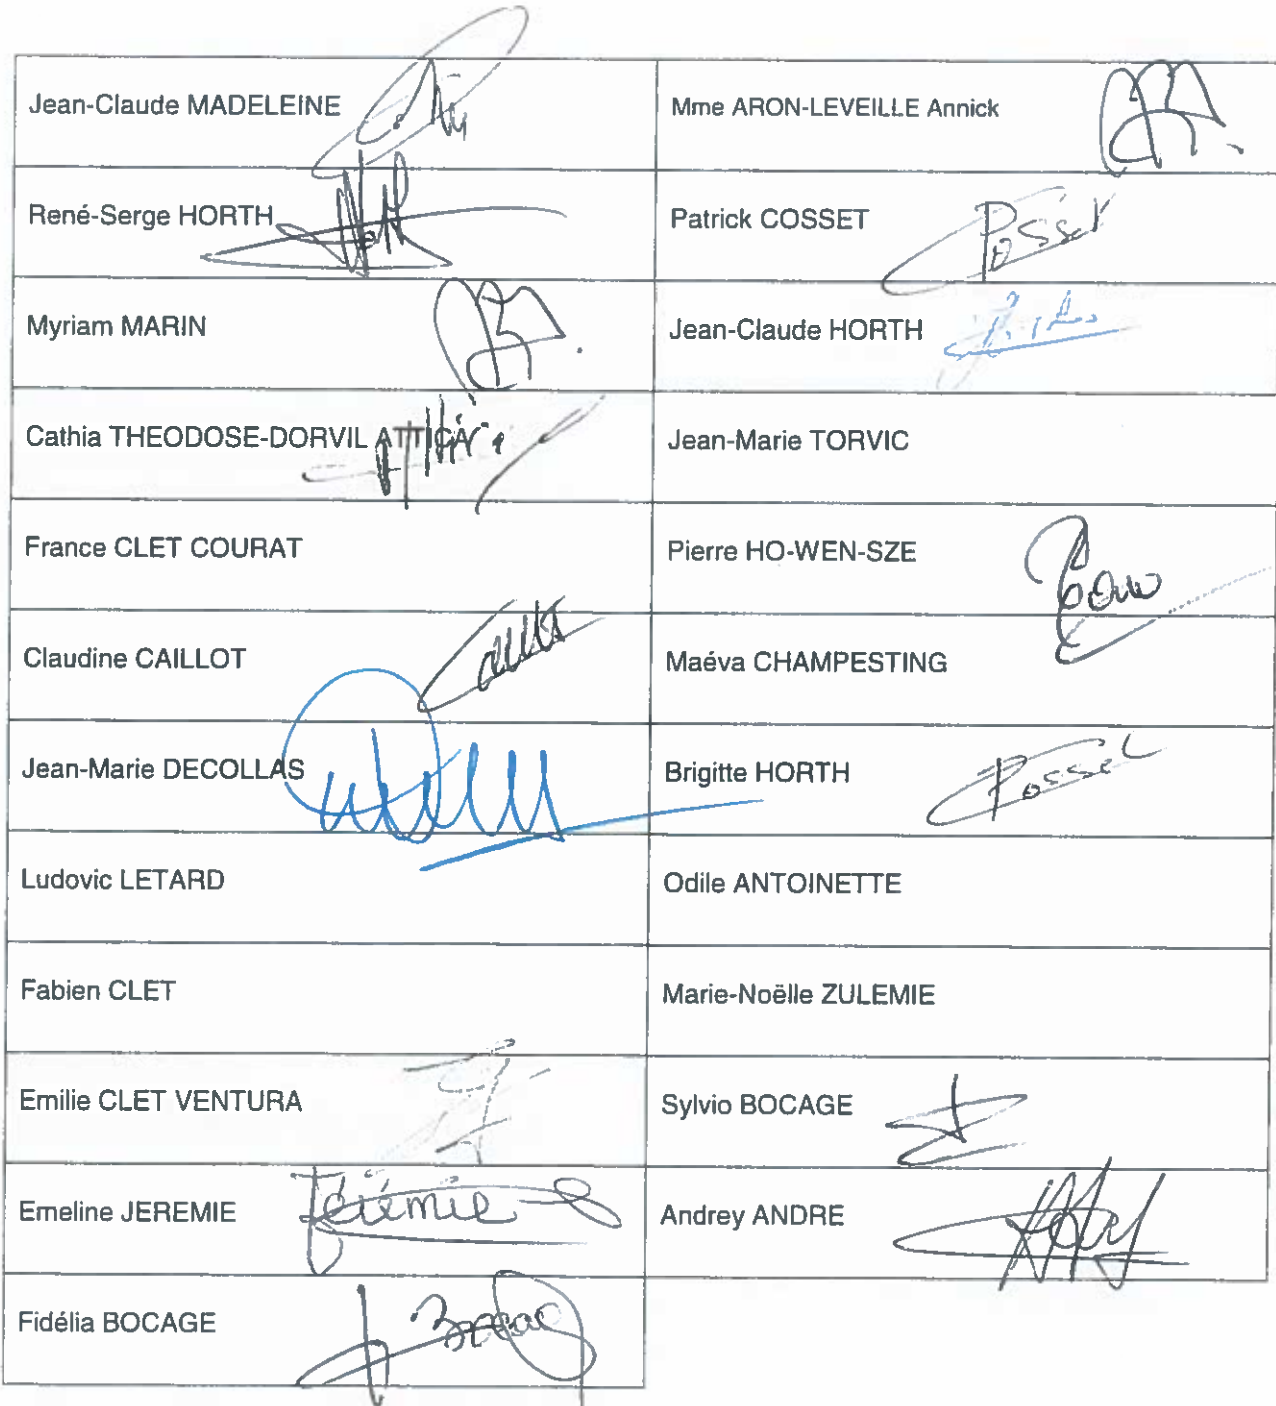 Jean-Claude MADELEINE
Mme ARON-LEVEILLE Annick
René-Serge HORTH
Patrick COSSET
Cosset
Myriam MARIN
Jean-Claude HORTH
Cathia THEODOSE-DORVIL ATTICA
Jean-Marie TORVIC
France CLET COURAT
Pierre HO-WEN-SZE
Claudine CAILLOT
Maéva CHAMPESTING
Jean-Marie DECOLLAS
Brigitte HORTH
Cosset
Ludovic LETARD
Odile ANTOINETTE
Fabien CLET
Marie-Noëlle ZULEMIE
Emilie CLET VENTURA
Sylvio BOCAGE
Emeline JEREMIE
Jérémie
Andrey ANDRE
Fidélia BOCAGE
Bocage